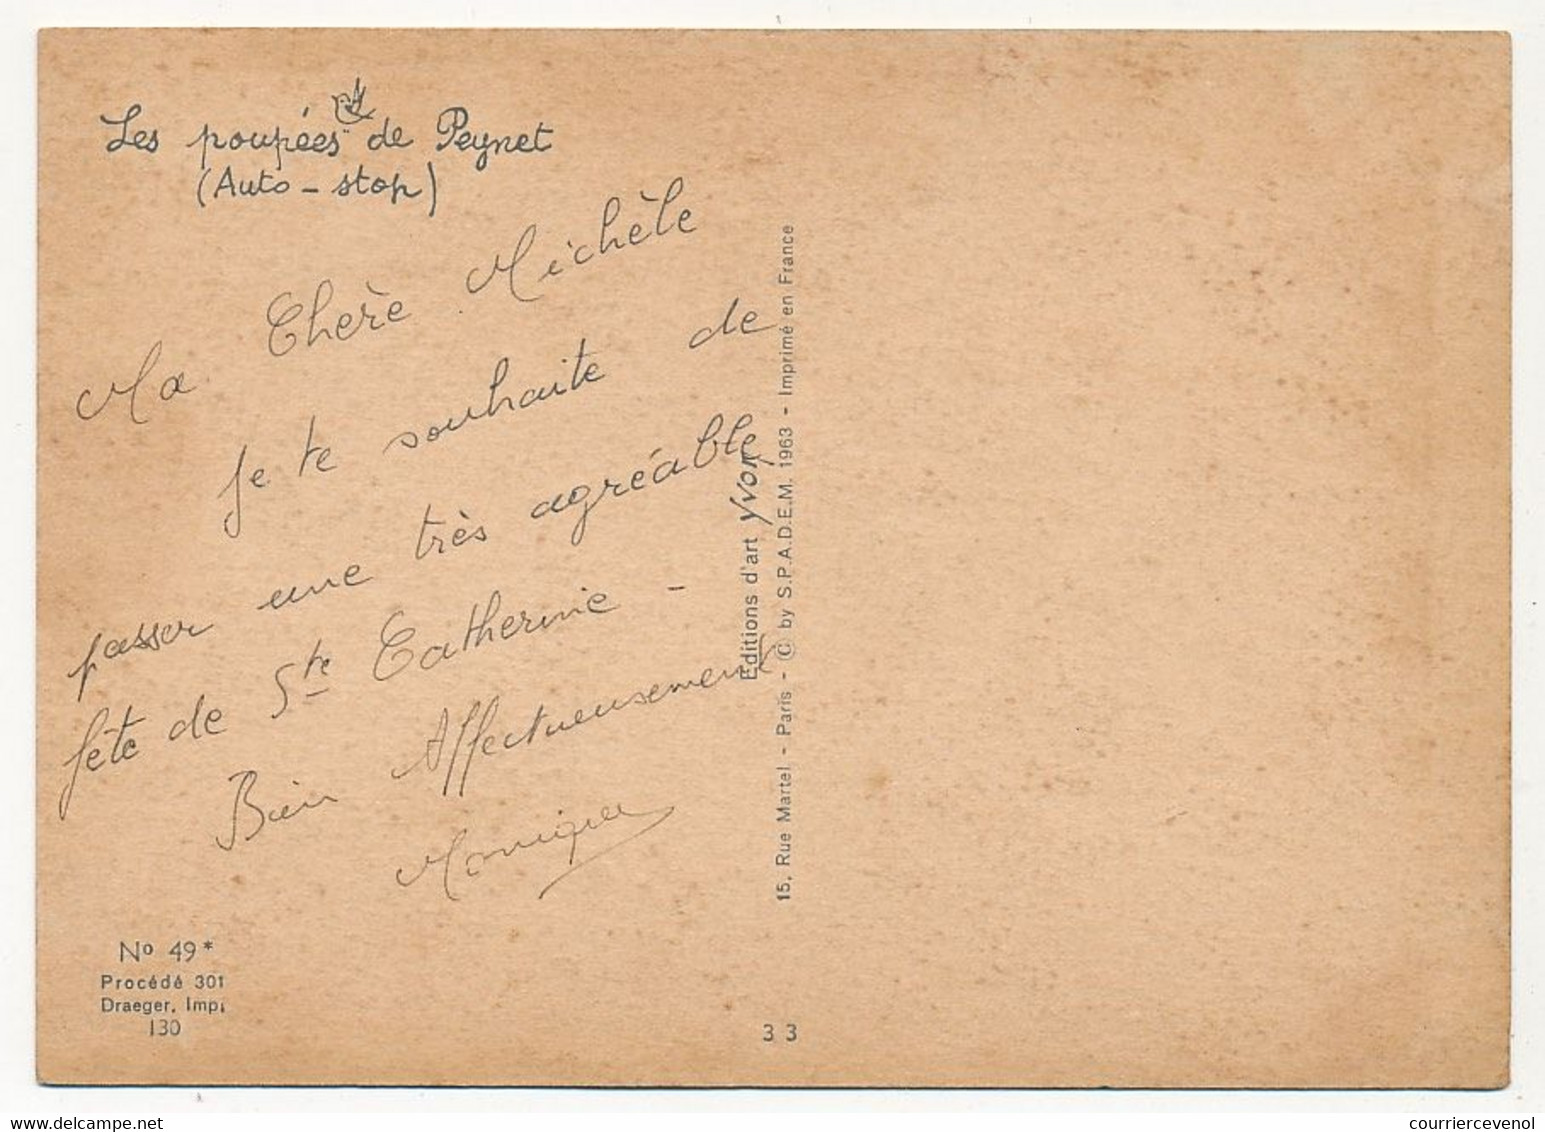 Les poupées de Peynet
(Auto-stop)
Ma Chère Michèle
Je te souhaite de
passer une très agréable
fête de Ste Catherine -
Bien Affectueusement
Monique
No 49*
Procédé 301
Draeger, Imp.
130
Editions d'art Yvon
15, Rue Martel - Paris - © by S.P.A.D.E.M. 1963 - Imprimé en France
3 3
courriercevenol